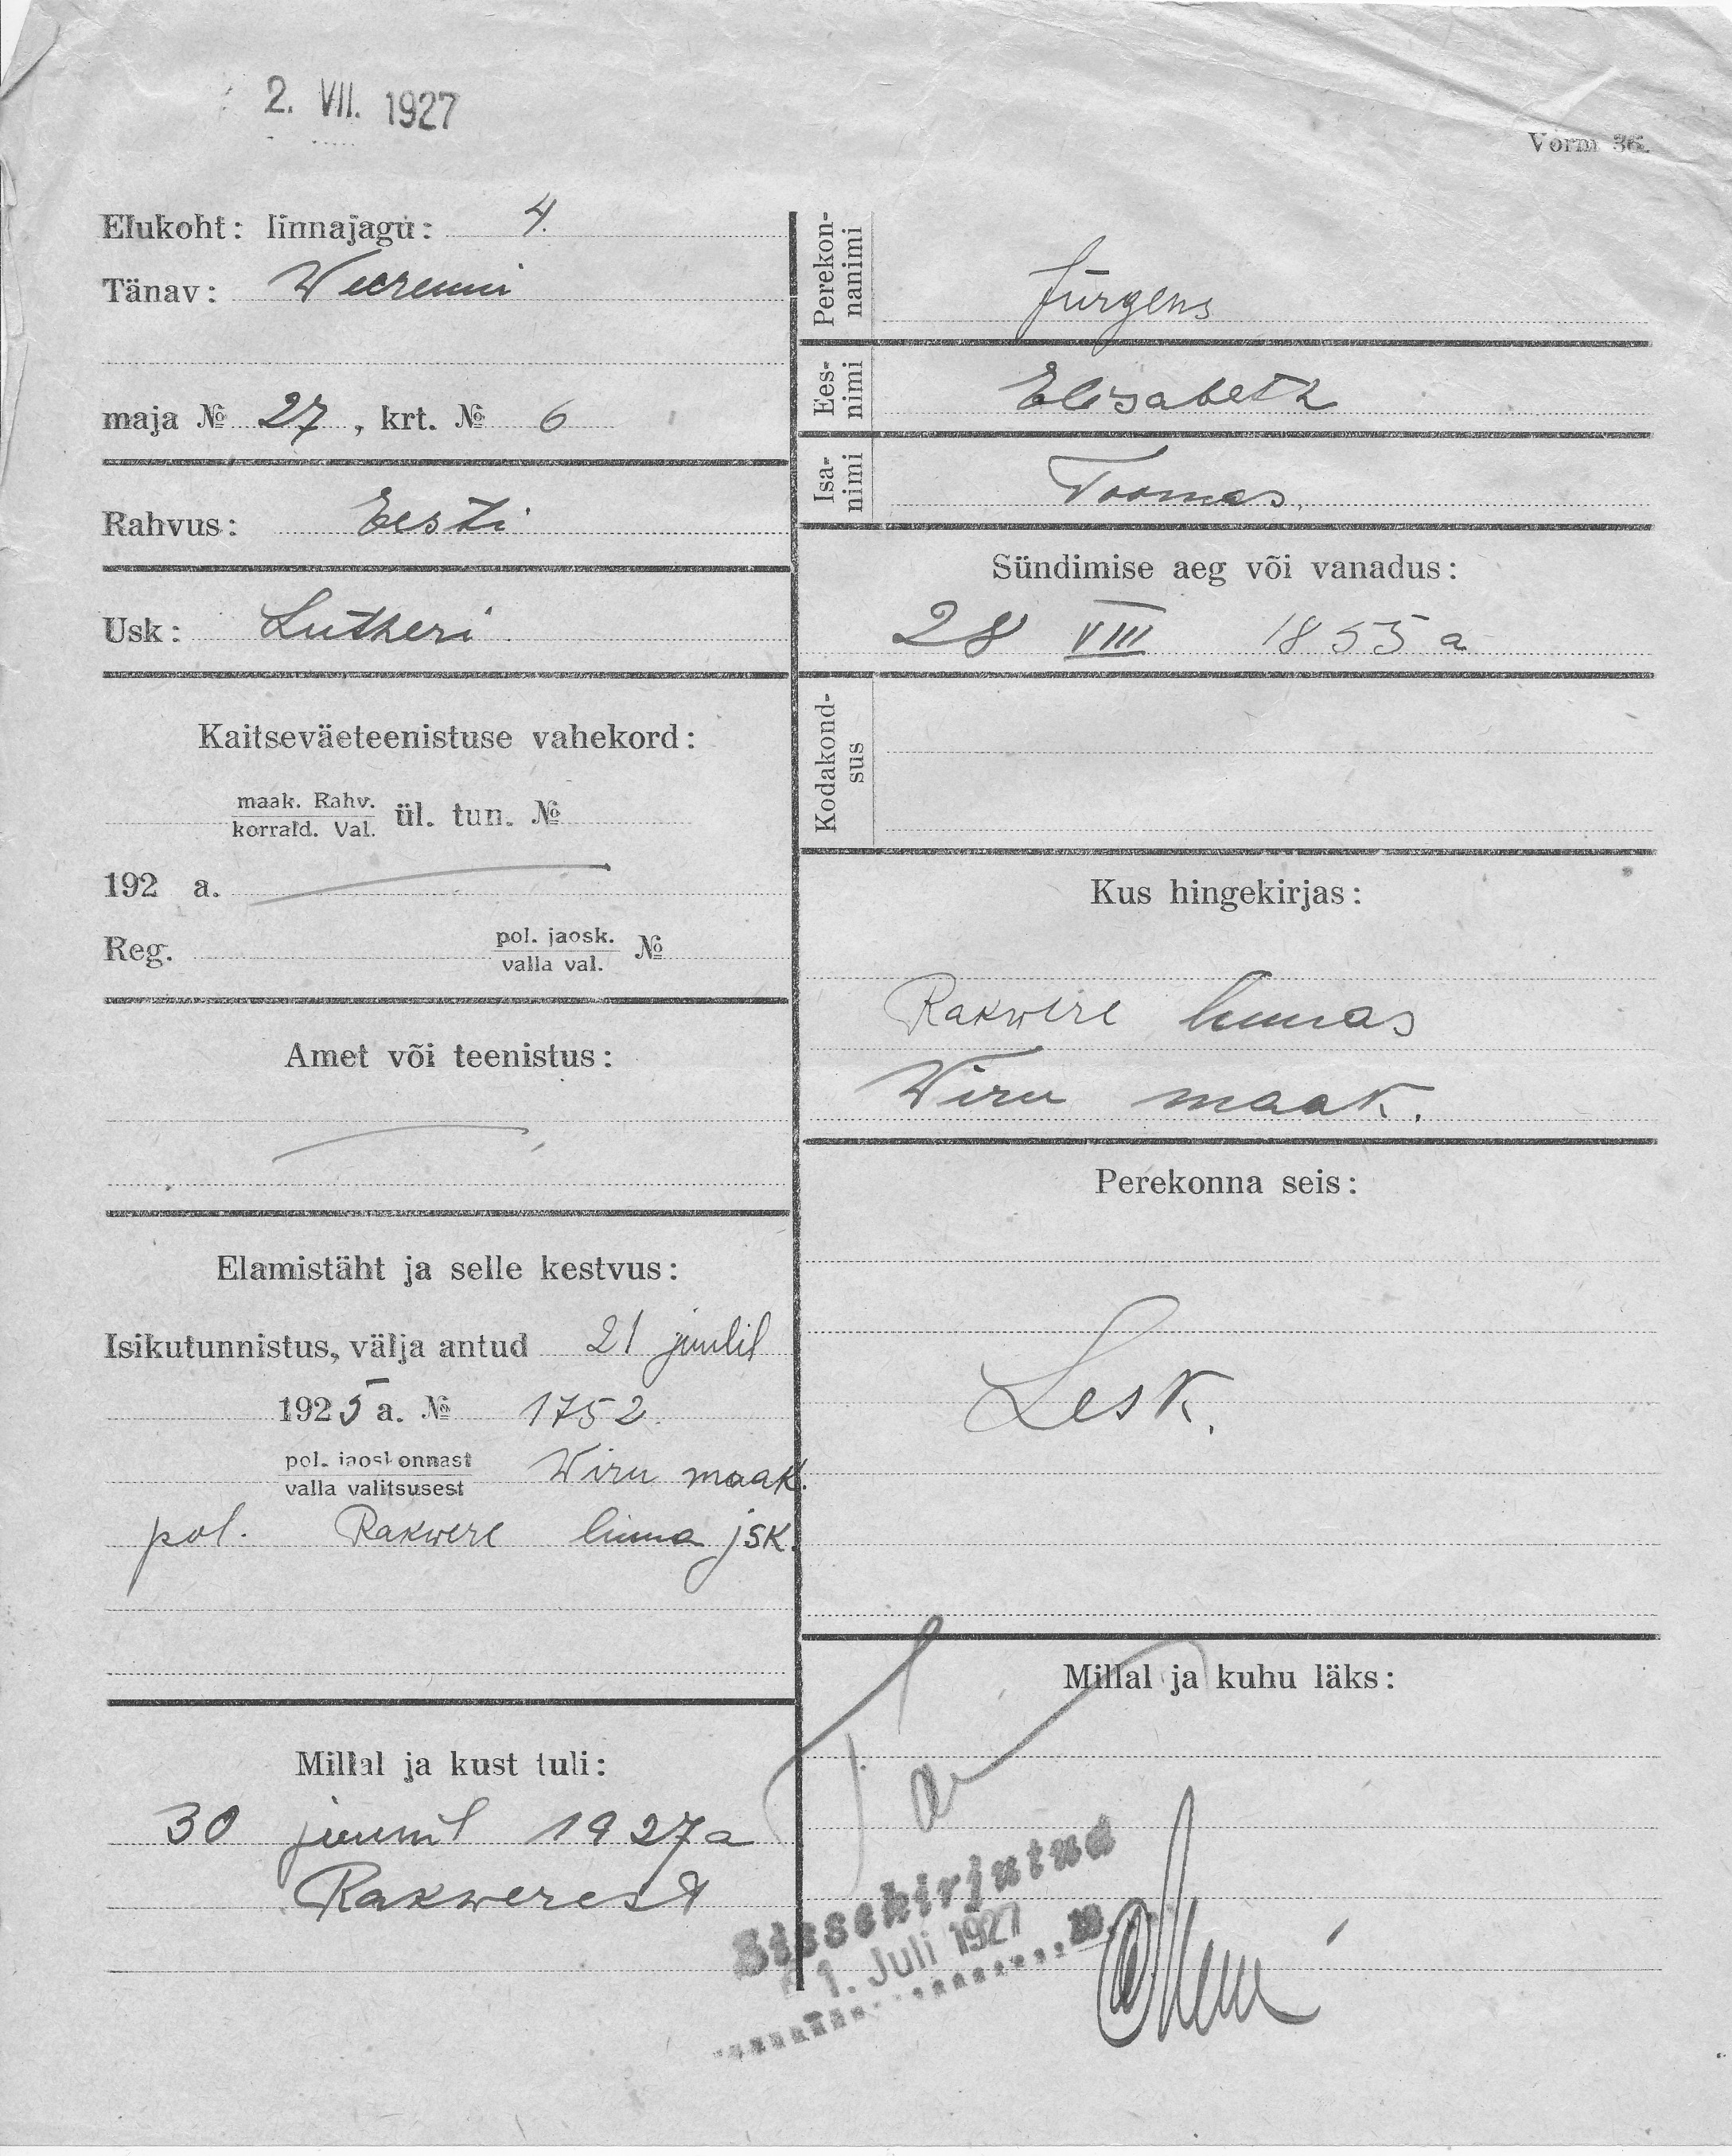 2. VII. 1927
Vorm 36.
Elukoht: linnajagu: 4.
Tänav: Weerenni
maja № 27, krt. № 6
Rahvus: Eesti
Usk: Lutheri
Kaitseväeteenistuse vahekord:
maak. Rahv.
korrald. Val. ül. tun. №
192 a.
Reg. pol. jaosk. №
valla val.
Amet või teenistus:
Elamistäht ja selle kestvus:
Isikutunnistus, välja antud 21 juulil
1925 a. № 1752.
pol. jaoskonnast Wiru maak.
valla valitsusest
pol. Rakwere linna jsk.
Millal ja kust tuli:
30 juunil 1927 a
Rakwerest
Perekon-
nanimi
Jürgens
Ees-
nimi
Elisabeth
Isa-
nimi
Toomas.
Sündimise aeg või vanadus:
28 VIII 1855 a
Kodakond-
sus
Kus hingekirjas:
Rakwere linnas
Wiru maak.
Perekonna seis:
Lesk.
Millal ja kuhu läks:
Sissekirjutud
1. Juli 1927